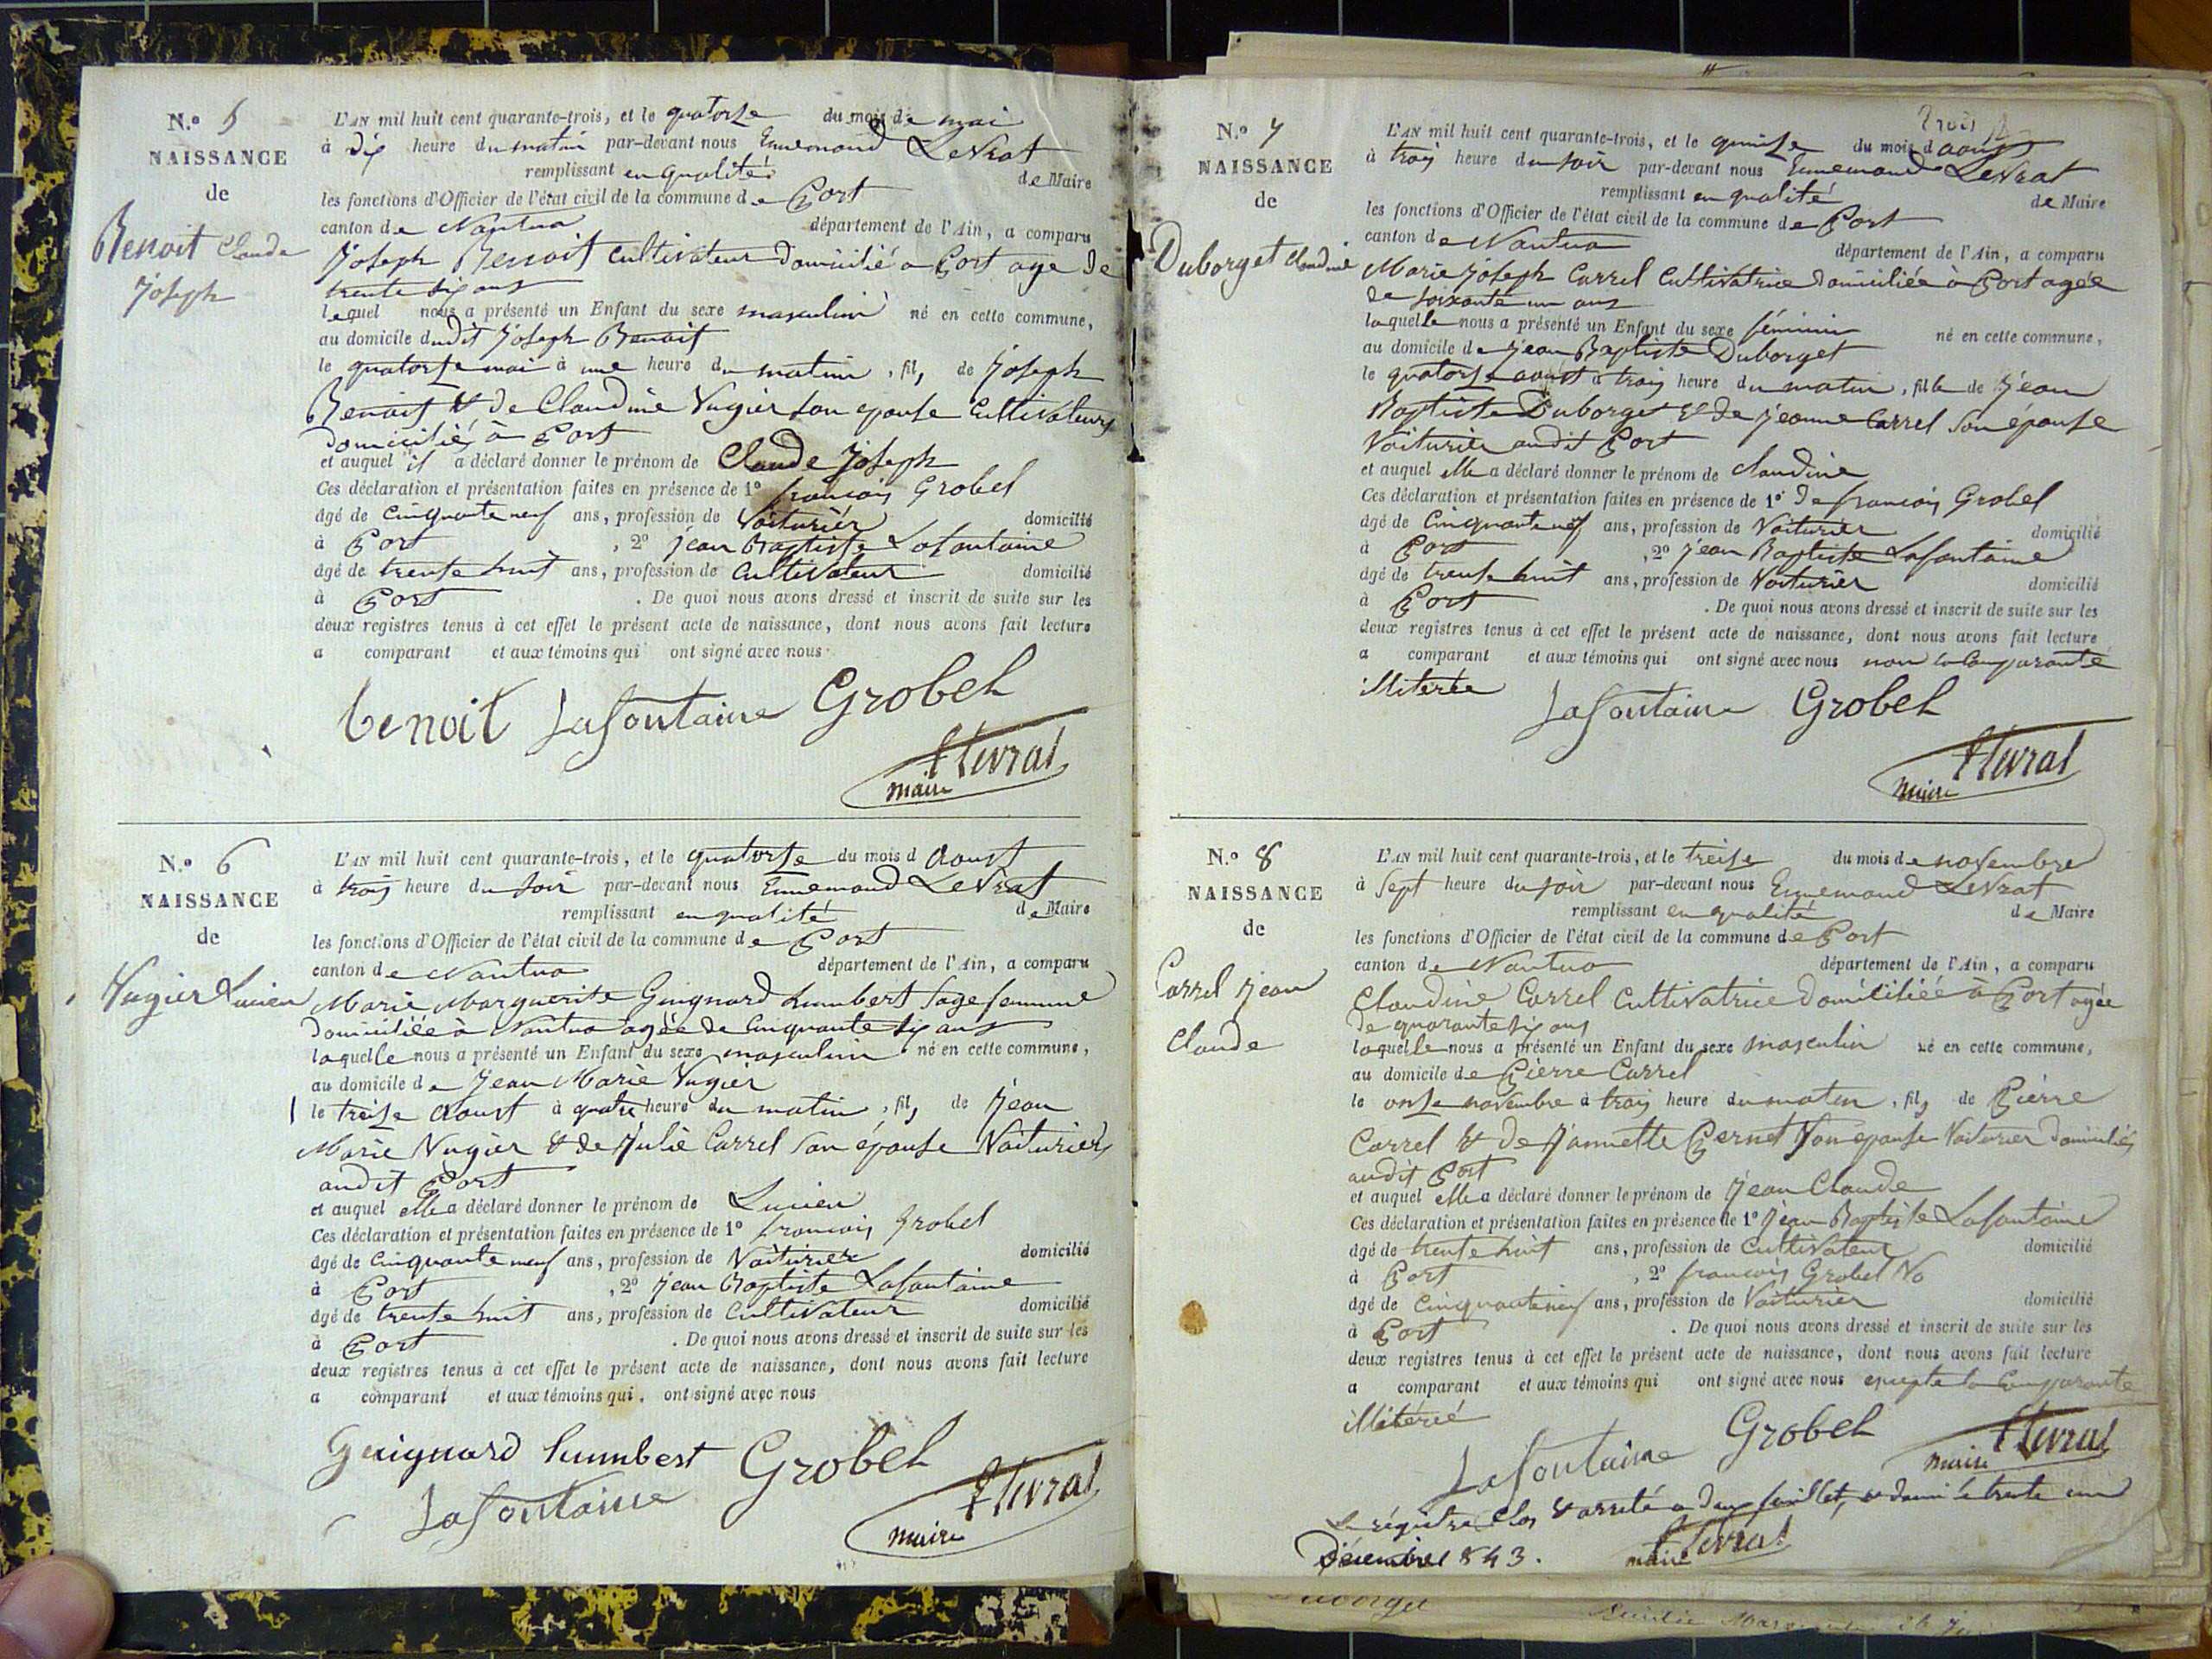 N.o 5
NAISSANCE
de
Benoit Claude
Joseph
L'AN mil huit cent quarante-trois, et le quatorze du mois de mai
à dix heure du matin par-devant nous Ennemond Levrat
remplissant en qualité de Maire
les fonctions d'Officier de l'état civil de la commune de Port
canton de Nantua département de l'Ain, a comparu
Joseph Benoit cultivateur domicilié a Port age de
trente six ans
lequel nous a présenté un Enfant du sexe masculin né en cette commune,
au domicile dudit Joseph Benoit
le quatorze mai à une heure du matin, fils de Joseph
Benoit & de Claudine Vugier son epouse Cultivateurs
domiciliés à Port
et auquel il a déclaré donner le prénom de Claude Joseph
Ces déclaration et présentation faites en présence de 1o françois Grobel
âgé de cinquante neuf ans, profession de Voiturier domicilié
à Port, 2o jean Baptiste Lafontaine
âgé de trente huit ans, profession de Cultivateur domicilié
à Port. De quoi nous avons dressé et inscrit de suite sur les
deux registres tenus à cet effet le présent acte de naissance, dont nous avons fait lecture
a comparant et aux témoins qui ont signé avec nous
benoit Lafontaine Grobel
Levrat
maire
N.o 6
NAISSANCE
de
Vugier Lucien
L'AN mil huit cent quarante-trois, et le quatorze du mois d Aoust
à trois heure du soir par-devant nous Ennemond Levrat
remplissant en qualité de Maire
les fonctions d'Officier de l'état civil de la commune de Port
canton de Nantua département de l'Ain, a comparu
Marie Marguerite Guignard humbert Sage femme
domiciliée à Nantua agée de Cinquante six ans
laquelle nous a présenté un Enfant du sexe masculin né en cette commune,
au domicile de Jean Marie Vugier
le treize Aoust à quatre heure du matin, fils de Jean
Marie Vugier & de Julie Carrel son épouse Voituriers
audit Port
et auquel elle a déclaré donner le prénom de Lucien
Ces déclaration et présentation faites en présence de 1o françois Grobel
âgé de Cinquante neuf ans, profession de Voiturier domicilié
à Port, 2o jean Baptiste Lafontaine
âgé de trente huit ans, profession de Cultivateur domicilié
à Port. De quoi nous avons dressé et inscrit de suite sur les
deux registres tenus à cet effet le présent acte de naissance, dont nous avons fait lecture
a comparant et aux témoins qui ont signé avec nous
Guignard humbert Grobel
Lafontaine Levrat
maire
trois
N.o 7
NAISSANCE
de
Duborget Claudine
L'AN mil huit cent quarante-trois, et le quinze du mois d aoust
à trois heure du soir par-devant nous Ennemond Levrat
remplissant en qualité de Maire
les fonctions d'Officier de l'état civil de la commune de Port
canton de Nantua département de l'Ain, a comparu
Marie Joseph Carrel Cultivatrice domiciliée à Port agée
de soixante un ans
laquelle nous a présenté un Enfant du sexe féminin né en cette commune,
au domicile de Jean Baptiste Duborget
le quatorze aoust à trois heure du matin, fille de Jean
Baptiste Duborget & de Jeanne Carrel son épouse
Voiturier audit Port
et auquel elle a déclaré donner le prénom de Claudine
Ces déclaration et présentation faites en présence de 1o de françois Grobel
âgé de Cinquante neuf ans, profession de Voiturier domicilié
à Port, 2o jean Baptiste Lafontaine
âgé de trente huit ans, profession de Voiturier domicilié
à Port. De quoi nous avons dressé et inscrit de suite sur les
deux registres tenus à cet effet le présent acte de naissance, dont nous avons fait lecture
a comparant et aux témoins qui ont signé avec nous non la Comparante
illiterée
Lafontaine Grobel
Levrat
maire
N.o 8
NAISSANCE
de
Carrel Jean
Claude
L'AN mil huit cent quarante-trois, et le treize du mois de novembre
à Sept heure du soir par-devant nous Ennemond Levrat
remplissant en qualité de Maire
les fonctions d'Officier de l'état civil de la commune de Port
canton de Nantua département de l'Ain, a comparu
Claudine Carrel Cultivatrice domiciliée à Port agée
de quarante six ans
laquelle nous a présenté un Enfant du sexe masculin né en cette commune,
au domicile de Pierre Carrel
le onze novembre à trois heure du matin, fils de Pierre
Carrel & de Jannette Pernet son epouse Voiturier domiciliés
audit Port
et auquel elle a déclaré donner le prénom de Jean Claude
Ces déclaration et présentation faites en présence de 1o Jean Baptiste Lafontaine
âgé de trente huit ans, profession de Cultivateur domicilié
à Port, 2o françois Grobel Vo
âgé de Cinquante neuf ans, profession de Voiturier domicilié
à Port. De quoi nous avons dressé et inscrit de suite sur les
deux registres tenus à cet effet le présent acte de naissance, dont nous avons fait lecture
a comparant et aux témoins qui ont signé avec nous excepte la Comparante
illitérée
Lafontaine Grobel Levrat
maire
Le régistre Clos & arreté a deux feuillets & demi le trente un
Décembre 1843.
Levrat
maire
Duborget